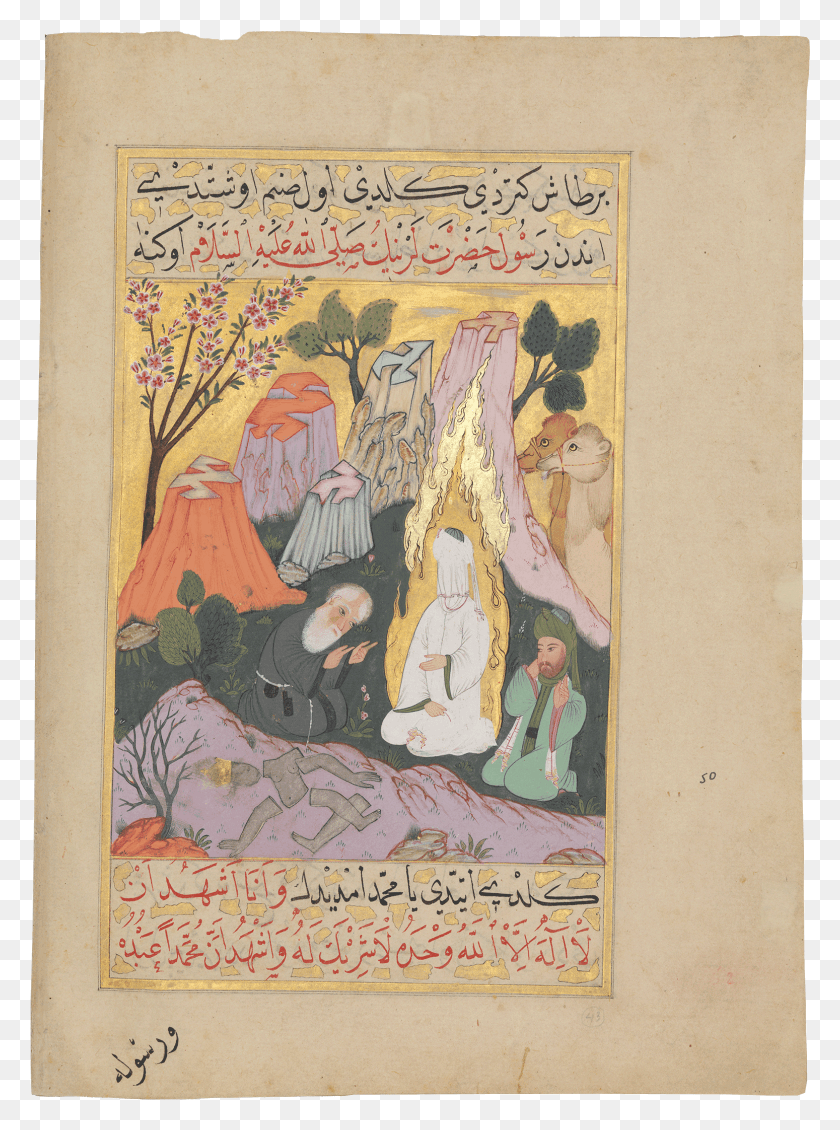 برطاش كتردي كلدي اول صنم اوشتدي
اندن رسول حضرت لرينك صلي الله عليه السلام اوكنه
50
كلدي ايتدي يا محمد امديدك وانا اشهد ان
لا اله الا الله وحده لا شريك له واشهد ان محمدا عبده
43
ورسوله